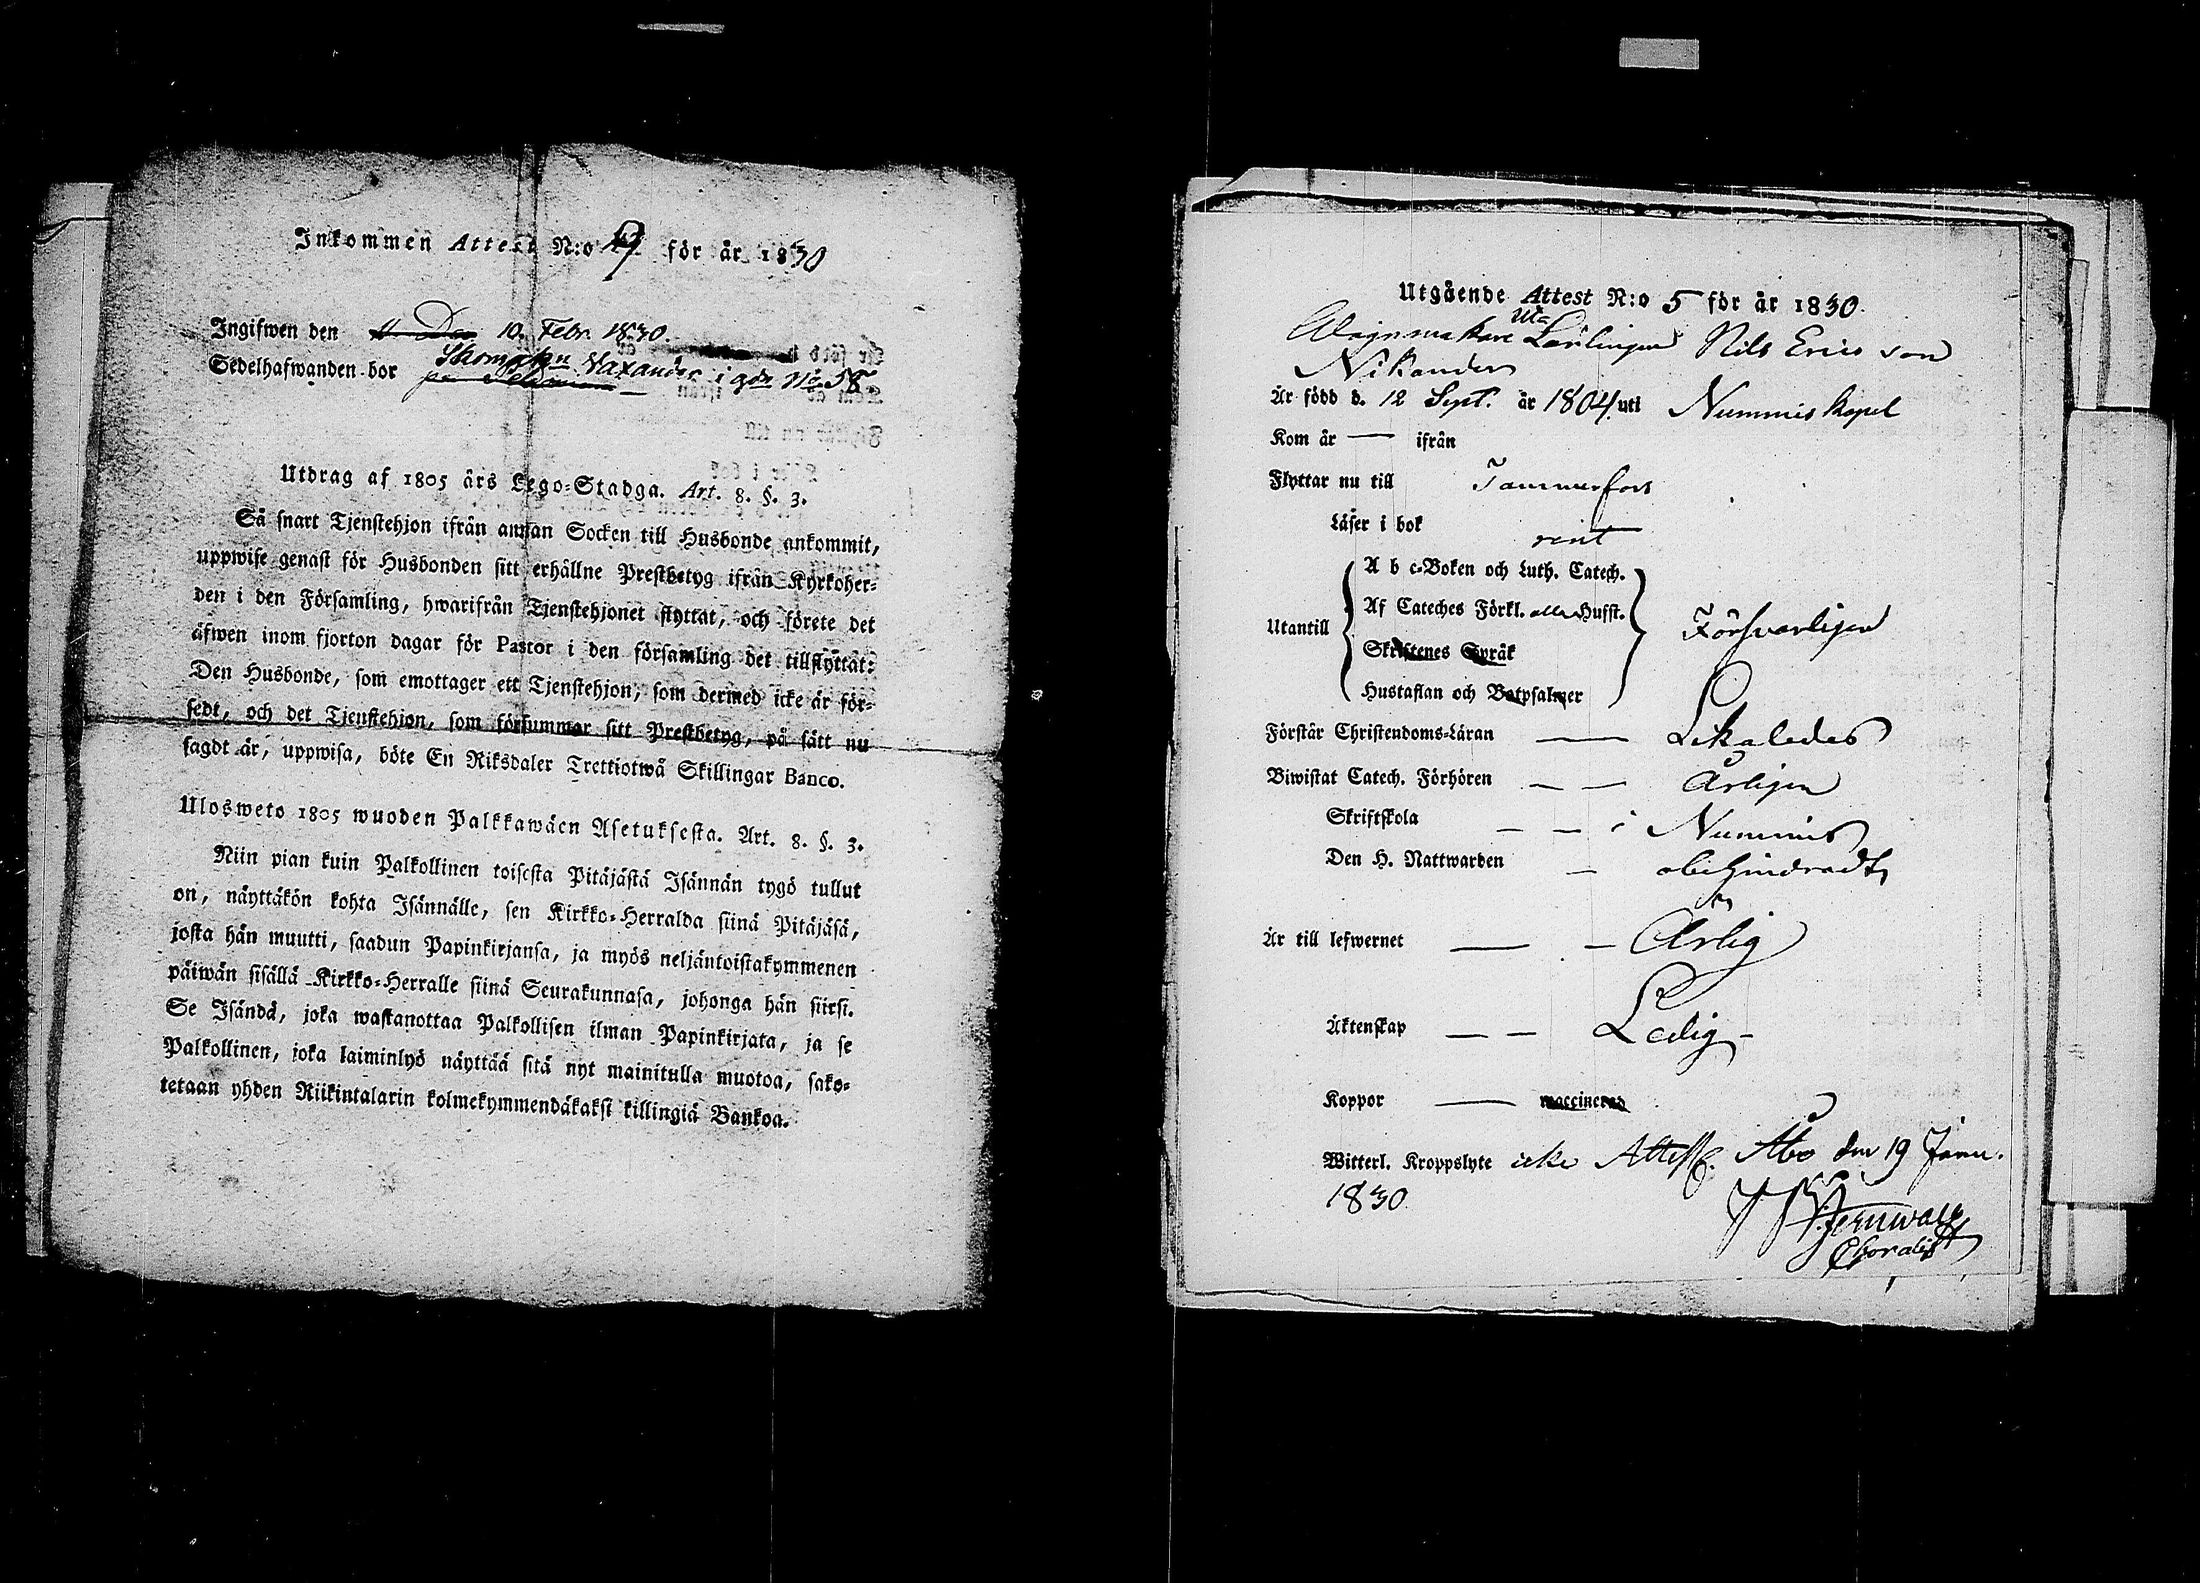 Inkommen Attest N:o 9 för år 1830
Ingifwen den 10. Febr. 1830.
Sedelhafwanden bor i gdn No 58
Utdrag af 1805 års Lego-Stadga. Art. 8. §. 3.
Så snart Tjenstehjon ifrån annan Socken till Husbonde ankommit,
uppwise genast för Husbonden sitt erhållne Prestbetyg ifrån Kyrkoher-
den i den Församling, hwarifrån Tjenstehjonet flyttat, och förete det
äfwen inom fjorton dagar för Pastor i den församling det tillflyttat:
Den Husbonde, som emottager ett Tjenstehjon, som dermed icke är för-
sedt, och det Tjenstehjon, som försummar sitt Prestbetyg, på sätt nu
sagdt är, uppwisa, böte En Riksdaler Trettiotwå Skillingar Banco.
Ulosweto 1805 wuoden Palkkawäen Asetuksesta. Art. 8. §. 3.
Niin pian kuin Palkollinen toisesta Pitäjästä Isännän tygö tullut
on, näyttäkön kohta Isännälle, sen Kirkko-Herralda siinä Pitäjäsä,
josta hän muutti, saadun Papinkirjansa, ja myös neljäntoistakymmenen
päiwän sisällä Kirkko-Herralle siinä Seurakunnasa, johonga hän siirsi.
Se Isändä, joka wastanottaa Palkollisen ilman Papinkirjata, ja se
Palkollinen, joka laiminlyö näyttää sitä nyt mainitulla muotoa, sako-
tetaan yhden Riikintalarin kolmekymmendäkaksi killingiä Bankoa.
Utgående Attest N:o 5 för år 1830.
Wagnmakare Lärlingen Nils Ericsson
Nikander
Är född d. 12 Sept. år 1804. uti Nummis Kapel
Kom år — ifrån
Flyttar nu till Tammerfors
Läser i bok rent
A b c-Boken och Luth. Catech.
Af Cateches Förkl. alla Hufst.
Utantill Försvarligen
Skriftenes Språk
Hustaflan och Botpsalmer
Förstår Christendoms-Läran — Likaledes
Biwistat Catech. Förhören — — Årligen
Skriftskola — — i Nummis
Den H. Nattwarden — obehindradt
Är till lefwernet — — Ärlig
Äktenskap — — Ledig
Koppor — waccinerad
Witterl. Kroppslyte icke Attest. Åbo den 19 Janu.
1830.